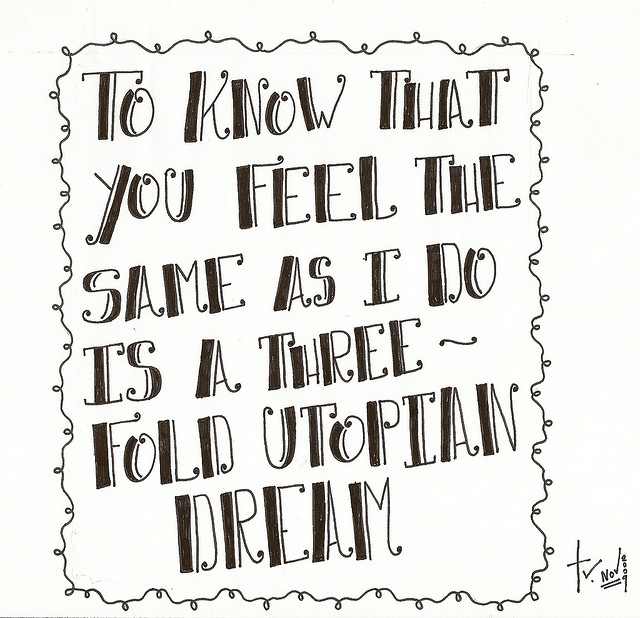 TO KNOW THAT
YOU FEEL THE
SAME AS I DO
IS A THREE~
FOLD UTOPIAN
DREAM
tv. Nov